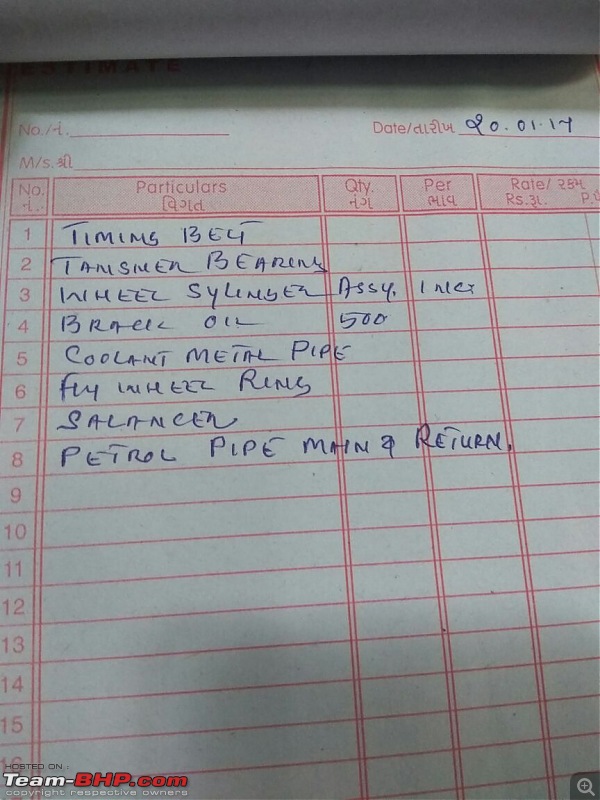 ESTIMATE
No./નં. Date/તારીખ 20.01.17
M/s.શ્રી
No. Particulars Qty. Per Rate/ રકમ
નં. વિગત નંગ ભાવ Rs.રૂા. P.પૈ
1 TIMING BELT
2 TANSNER BEARING
3 WHEEL SYLINDER ASSY. 1 NOS
4 BRACK OIL 500
5 COOLANT METAL PIPE
6 FLY WHEEL RING
7 SALANCER
8 PETROL PIPE MAIN & RETURN.
9
10
11
12
13
14
15
16
HOSTED ON :
Team-BHP.com
copyright respective owners